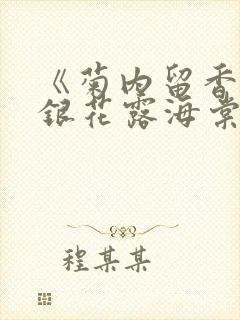 《菊内留香
银花露海棠
程某某